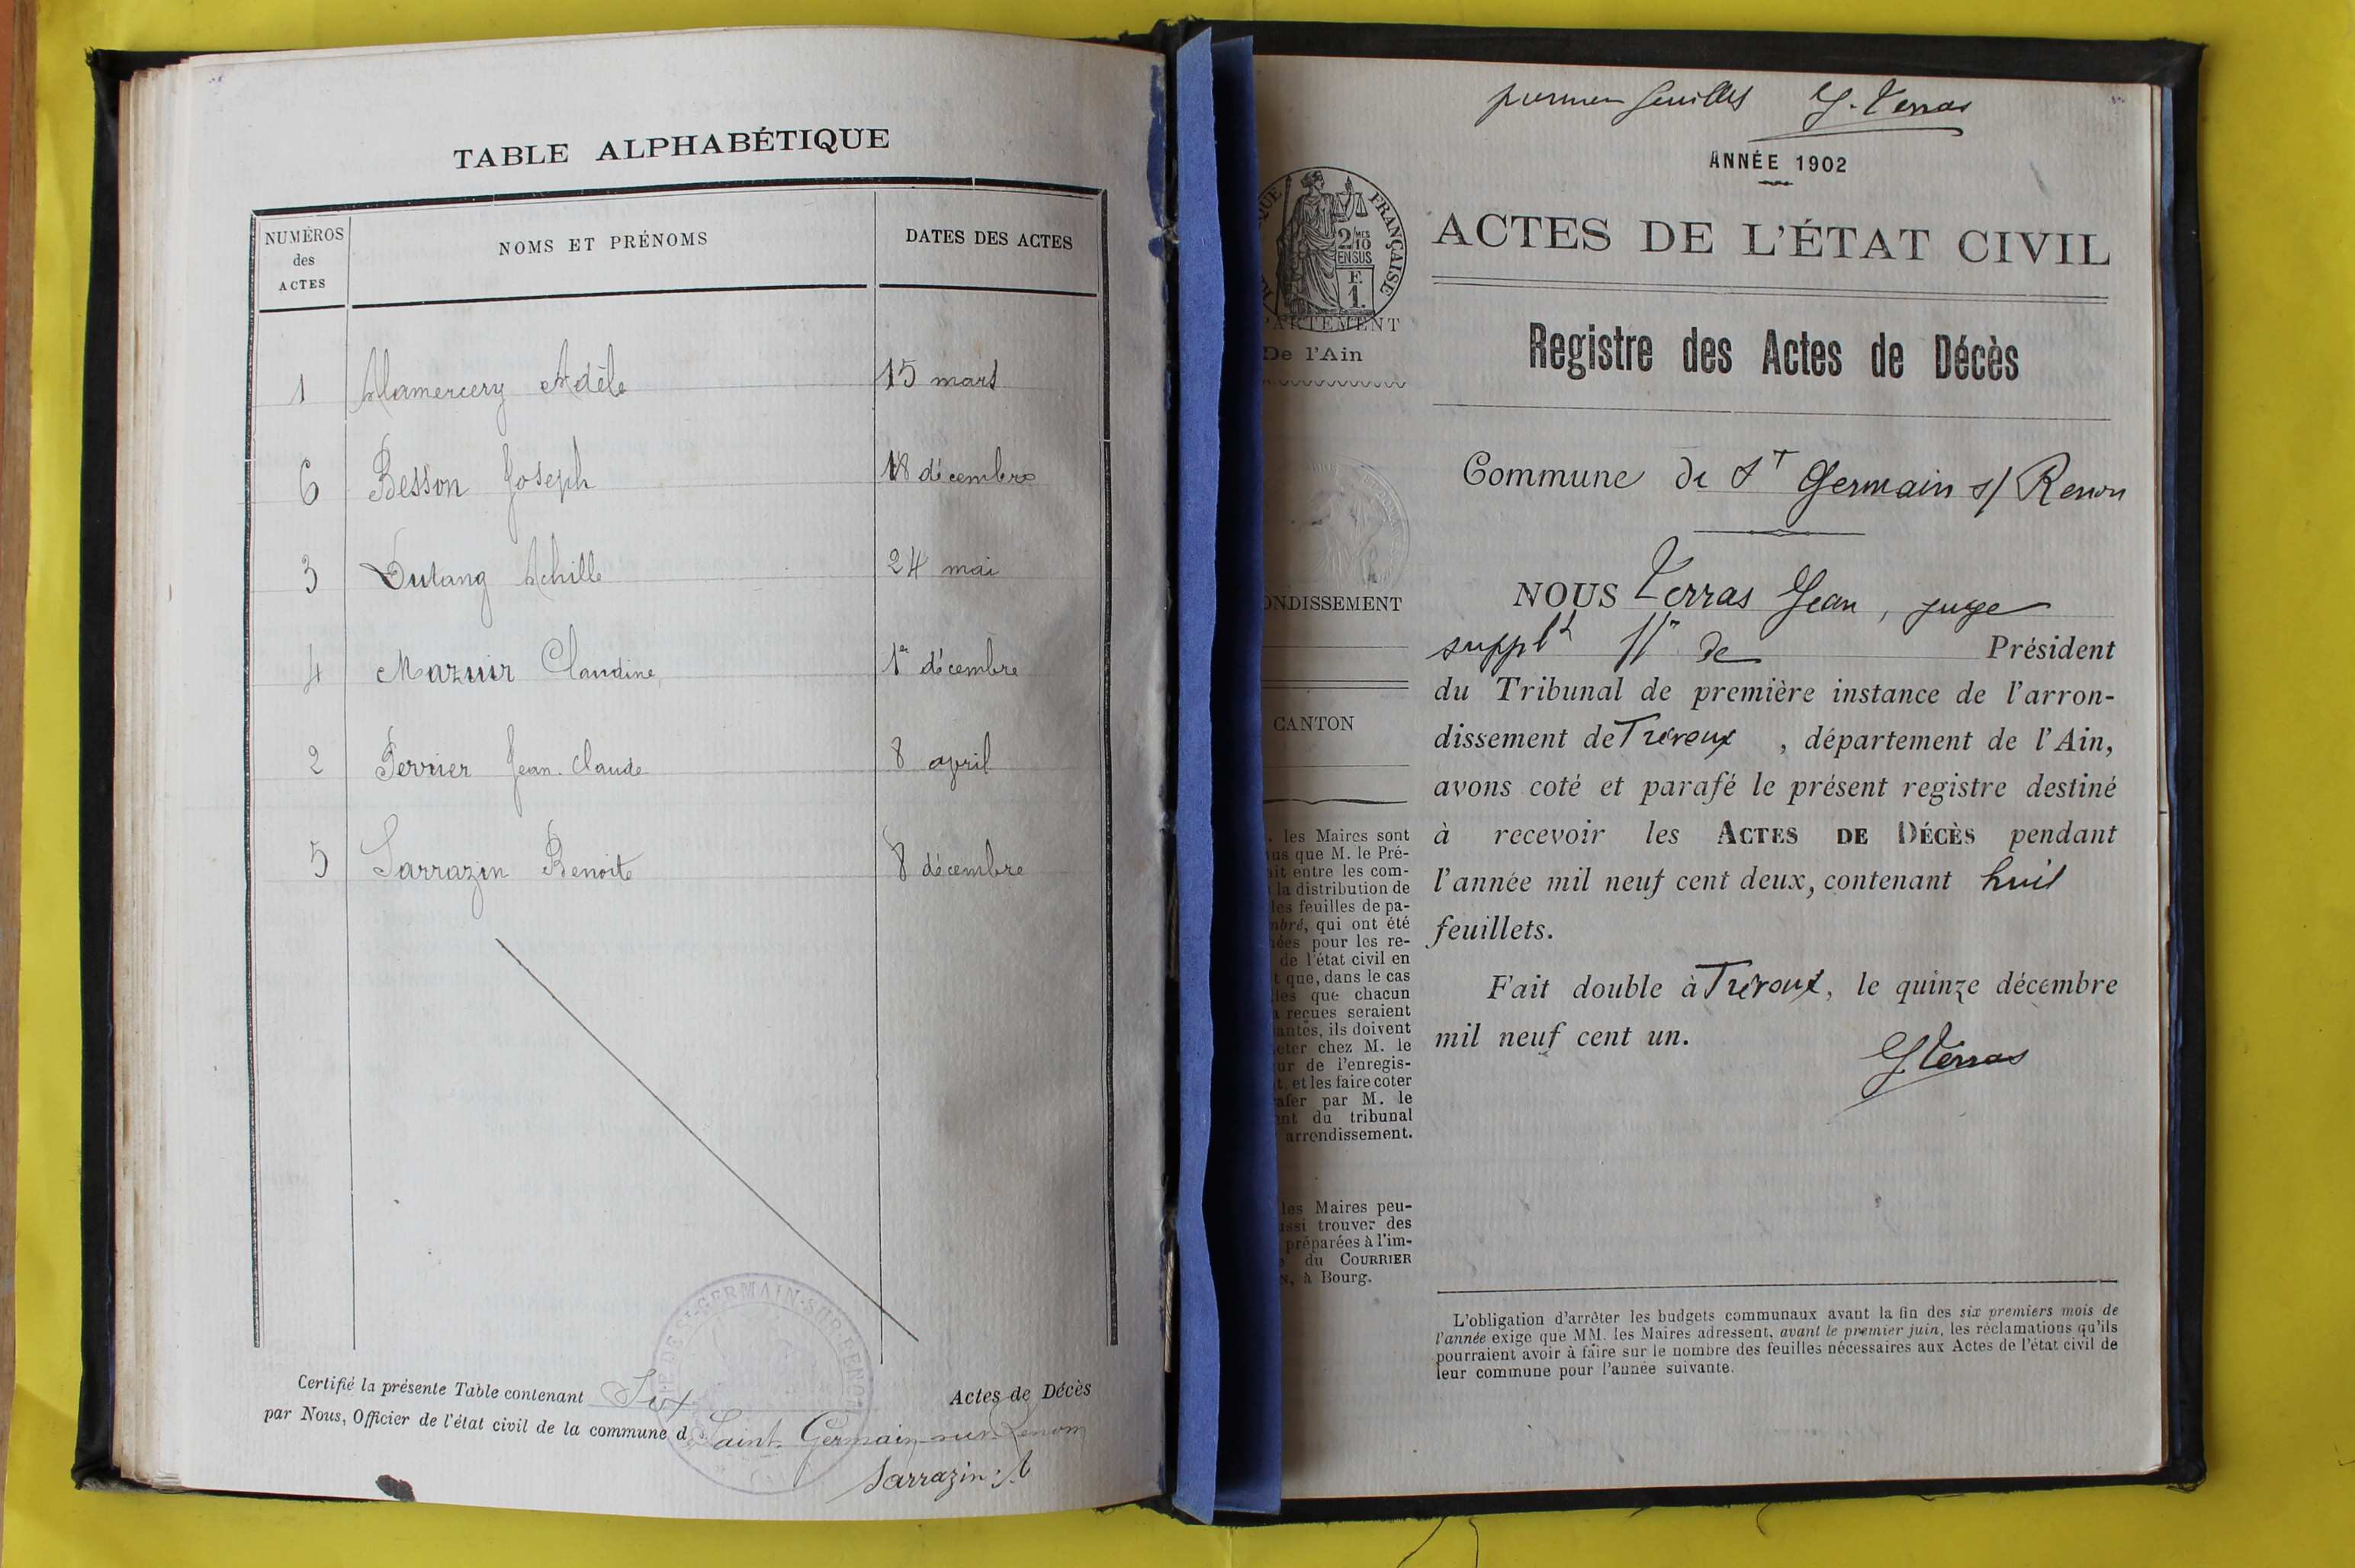 TABLE ALPHABÉTIQUE
NUMÉROS des ACTES
NOMS ET PRÉNOMS
DATES DES ACTES
1 Alamercery Adèle 15 mars
6 Besson Joseph 18 décembre
3 Dutang Achille 24 mai
4 Mazuir Claudine 1er décembre
2 Perrier Jean-Claude 8 avril
5 Sarrazin Benoite 8 décembre
Certifié la présente Table contenant Six Actes de Décès
par Nous, Officier de l'état civil de la commune de Saint-Germain-sur-Renom
Sarrazin
DE ST-GERMAIN-SUR-RENON
J. Verras
ANNÉE 1902
FRANÇAISE
2/10 MES
EN SUS
F.
1.
De l'Ain
CANTON
les Maires sont
que M. le Pré-
entre les com-
la distribution de
les feuilles de pa-
qui ont été
pour les re-
de l'état civil en
que, dans le cas
que chacun
reçues seraient
ils doivent
chez M. le
de l'enregis-
et les faire coter
par M. le
du tribunal
arrondissement.
les Maires peu-
trouver des
préparées à l'im-
du COURRIER
à Bourg.
ACTES DE L'ÉTAT CIVIL
Registre des Actes de Décès
Commune de St Germain s/ Renon
NOUS Verras Jean, juge
supplt ff de Président
du Tribunal de première instance de l'arron-
dissement de Trévoux, département de l'Ain,
avons coté et parafé le présent registre destiné
à recevoir les ACTES DE DÉCÈS pendant
l'année mil neuf cent deux, contenant huit
feuillets.
Fait double à Trévoux, le quinze décembre
mil neuf cent un.
J. Verras
L'obligation d'arrêter les budgets communaux avant la fin des six premiers mois de
l'année exige que MM. les Maires adressent, avant le premier juin, les réclamations qu'ils
pourraient avoir à faire sur le nombre des feuilles nécessaires aux Actes de l'état civil de
leur commune pour l'année suivante.